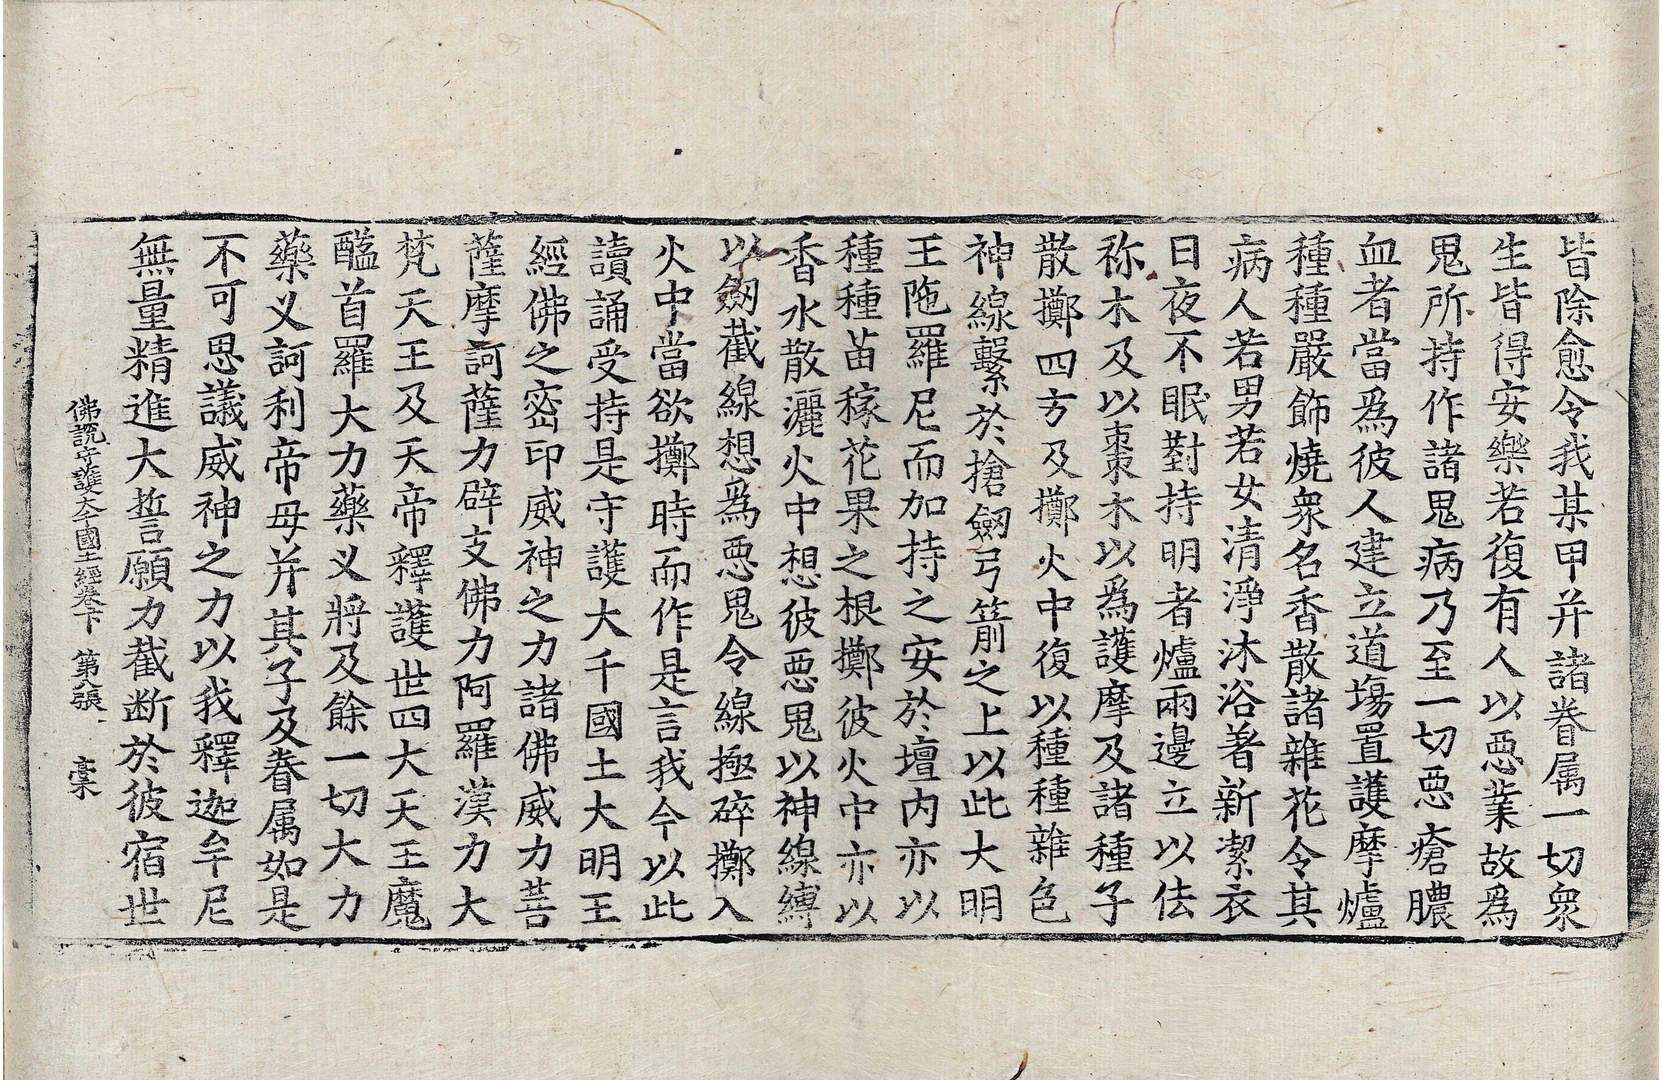 皆除愈令我某甲并諸眷属一切衆
生皆得安樂若復有人以惡業故爲
鬼所持作諸鬼病乃至一切惡瘡膿
血者當爲彼人建立道場置護摩爐
種種嚴飾燒衆名香散諸雜花令其
病人若男若女清淨沐浴著新潔衣
日夜不眠對持明者爐兩邊立以佉
祢木及以棗木以爲護摩及諸種子
散擲四方及擲火中復以種種雜色
神線繫於搶劒弓箭之上以此大明
王陁羅尼而加持之安於壇内亦以
種種苗稼花果之根擲彼火中亦以
香水散灑火中想彼惡鬼以神線縛
以劒截線想爲惡鬼令線極碎擲入
火中當欲擲時而作是言我今以此
讀誦受持是守護大千國土大明王
經佛之密印威神之力諸佛威力菩
薩摩訶薩力辟支佛力阿羅漢力大
梵天王及天帝釋護世四大天王魔
醯首羅大力藥义將及餘一切大力
藥义訶利帝母并其子及眷属如是
不可思議威神之力以我釋迦牟尼
無量精進大誓願力截断於彼宿世
佛說守護大千國土經卷下 第八張 稾